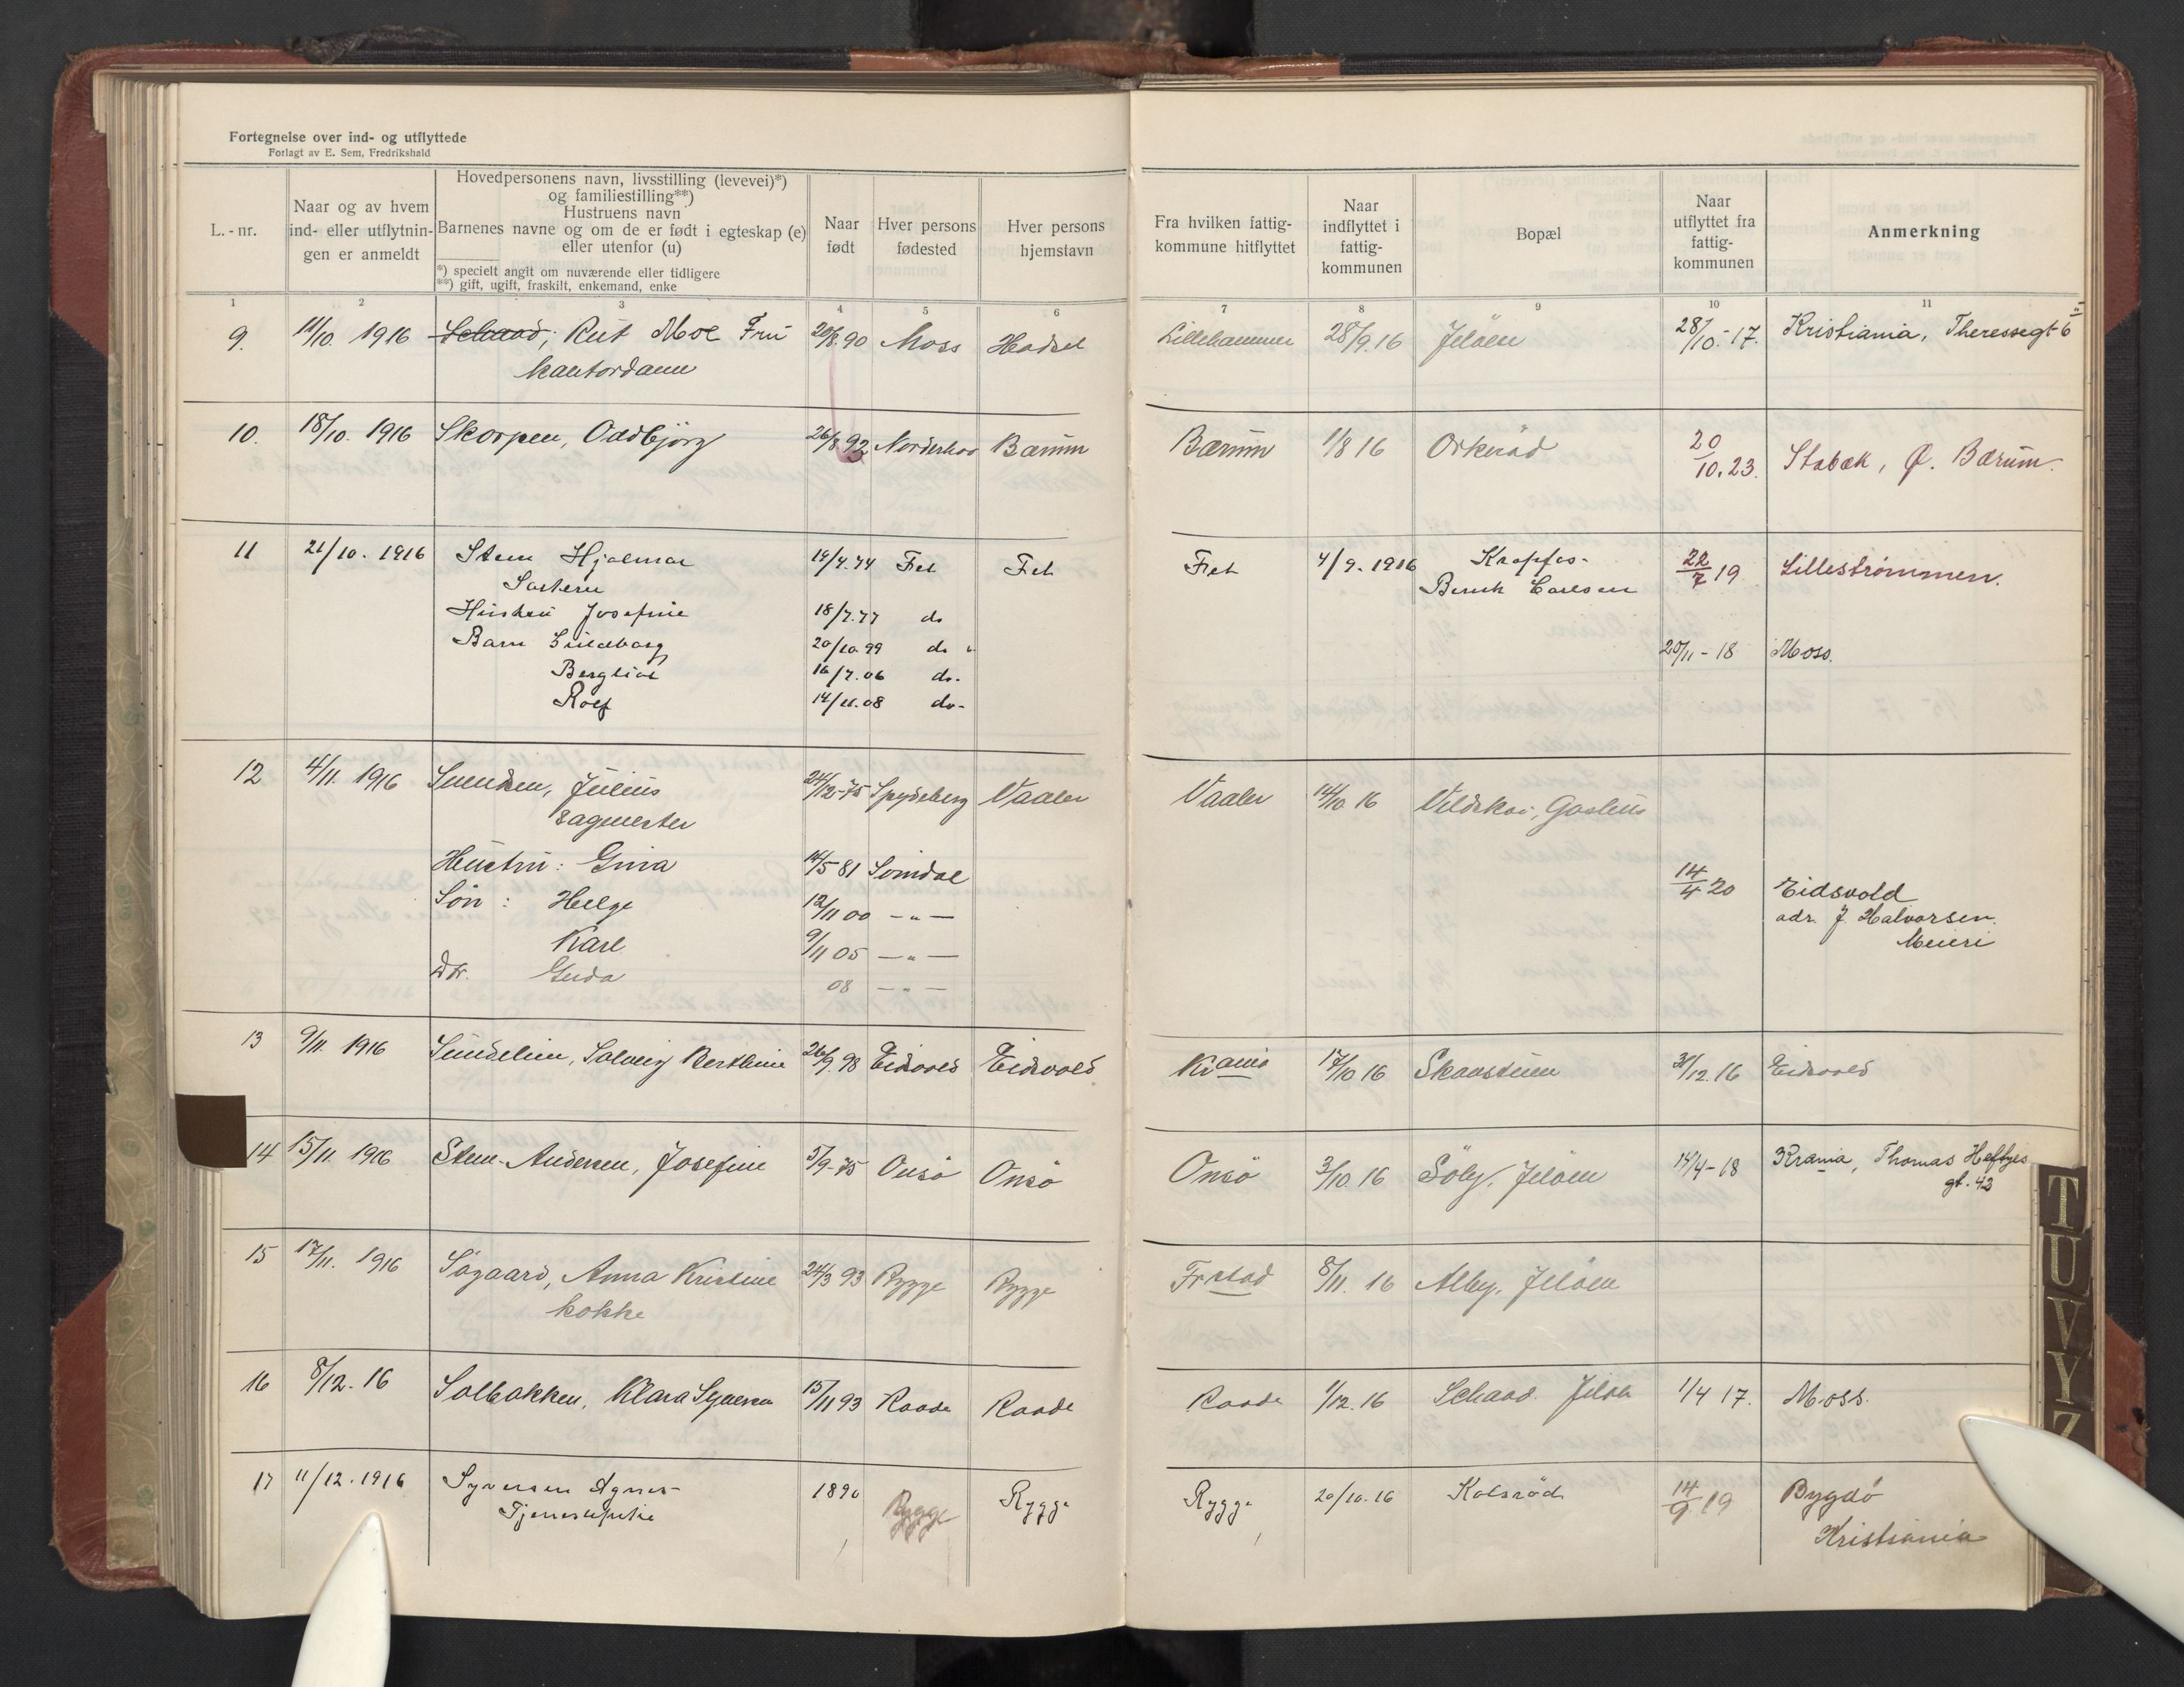 Fortegnelse over ind- og utflyttede
Forlagt av E. Sem, Fredrikshald
L.-nr.
Naar og av hvem
ind- eller utflytnin-
gen er anmeldt
Hovedpersonens navn, livsstilling (levevei)*)
og familiestilling**)
Hustruens navn
Barnenes navne og om de er født i egteskap (e)
eller utenfor (u)
*) specielt angit om nuværende eller tidligere
**) gift, ugift, fraskilt, enkemand, enke
Naar
født
Hver persons
fødested
Hver persons
hjemstavn
Fra hvilken fattig-
kommune hitflyttet
Naar
indflyttet i
fattig-
kommunen
Bopæl
Naar
utflyttet fra
fattig-
kommunen
Anmerkning
1 2 3 4 5 6 7 8 9 10 11
9. 11/10 1916 Schaad, Rut Moe Fru 20/8.90 Moss Hadsel Lillehammer 28/9.16 Jeløen 28/10.-17. Kristiania, Theressegt 6 II
kontordame
10. 18/10. 1916 Skorpen, Oddbjörg 26/8.92 Norderhov Bærum Bærum 1/8 16 Orkerød 20/10.23. Stabæk, Ø. Bærum.
11 21/10. 1916 Sten Hjalmar 19/7.74 Fet Fet Fet 4/9.1916 Kropfos- 22/7 19 Lillestrømmen.
Bernh Carlsen
Hustru Josefine 18/7.77 do
Barn 20/10.99 do " 20/11-18 Moss.
Bergliot 16/7.06 do.
Rolf 14/11.08 do-
12 4/11. 1916 Svendsen, Julius 24/12-75 Spydeberg Vaaler Vaaler 14/10 16
sagmester
Hustru: Gina 14/5 81 Somdal
Sön: Helge 12/11 00 — " — 14/4 20 Eidsvold
adr. J. Halvorsen.
Karl 9/11 05 — " — Meieri
Dtr. Gerda 08 — " —
13 9/11. 1916 Sundelien, Solveig Berthine 26/9.98 Eidsvold Eidsvold Krania 17/10 16 31/12.16 Eidsvold
14 15/11 1916 Sten-Andersen, Josefine 5/9-75 Onsö Onsö Onsö 3/10.16 Söly, Jelöen 14/4-18 Krania, Thomas Heftyes
gt. 42
15 17/11. 1916 Sögaard, Anna Kristine 24/3 93 Rygge Rygge Frstad 8/11. 16 Alby, Jelöen
kokke
16 8/12. 16 Solbakken, Klara Syversen 15/11 93 Raade Raade Raade 1/12.16 Schaad. Jelöen 1/4 17. Moss.
17 11/12.1916 Syversen Agnes 1890 Rygge Rygge Rygge 20/10.16 Kolsrød 14/9 19 Bygdö
Tjenestepike Kristiania
T
U
V
Y
Z